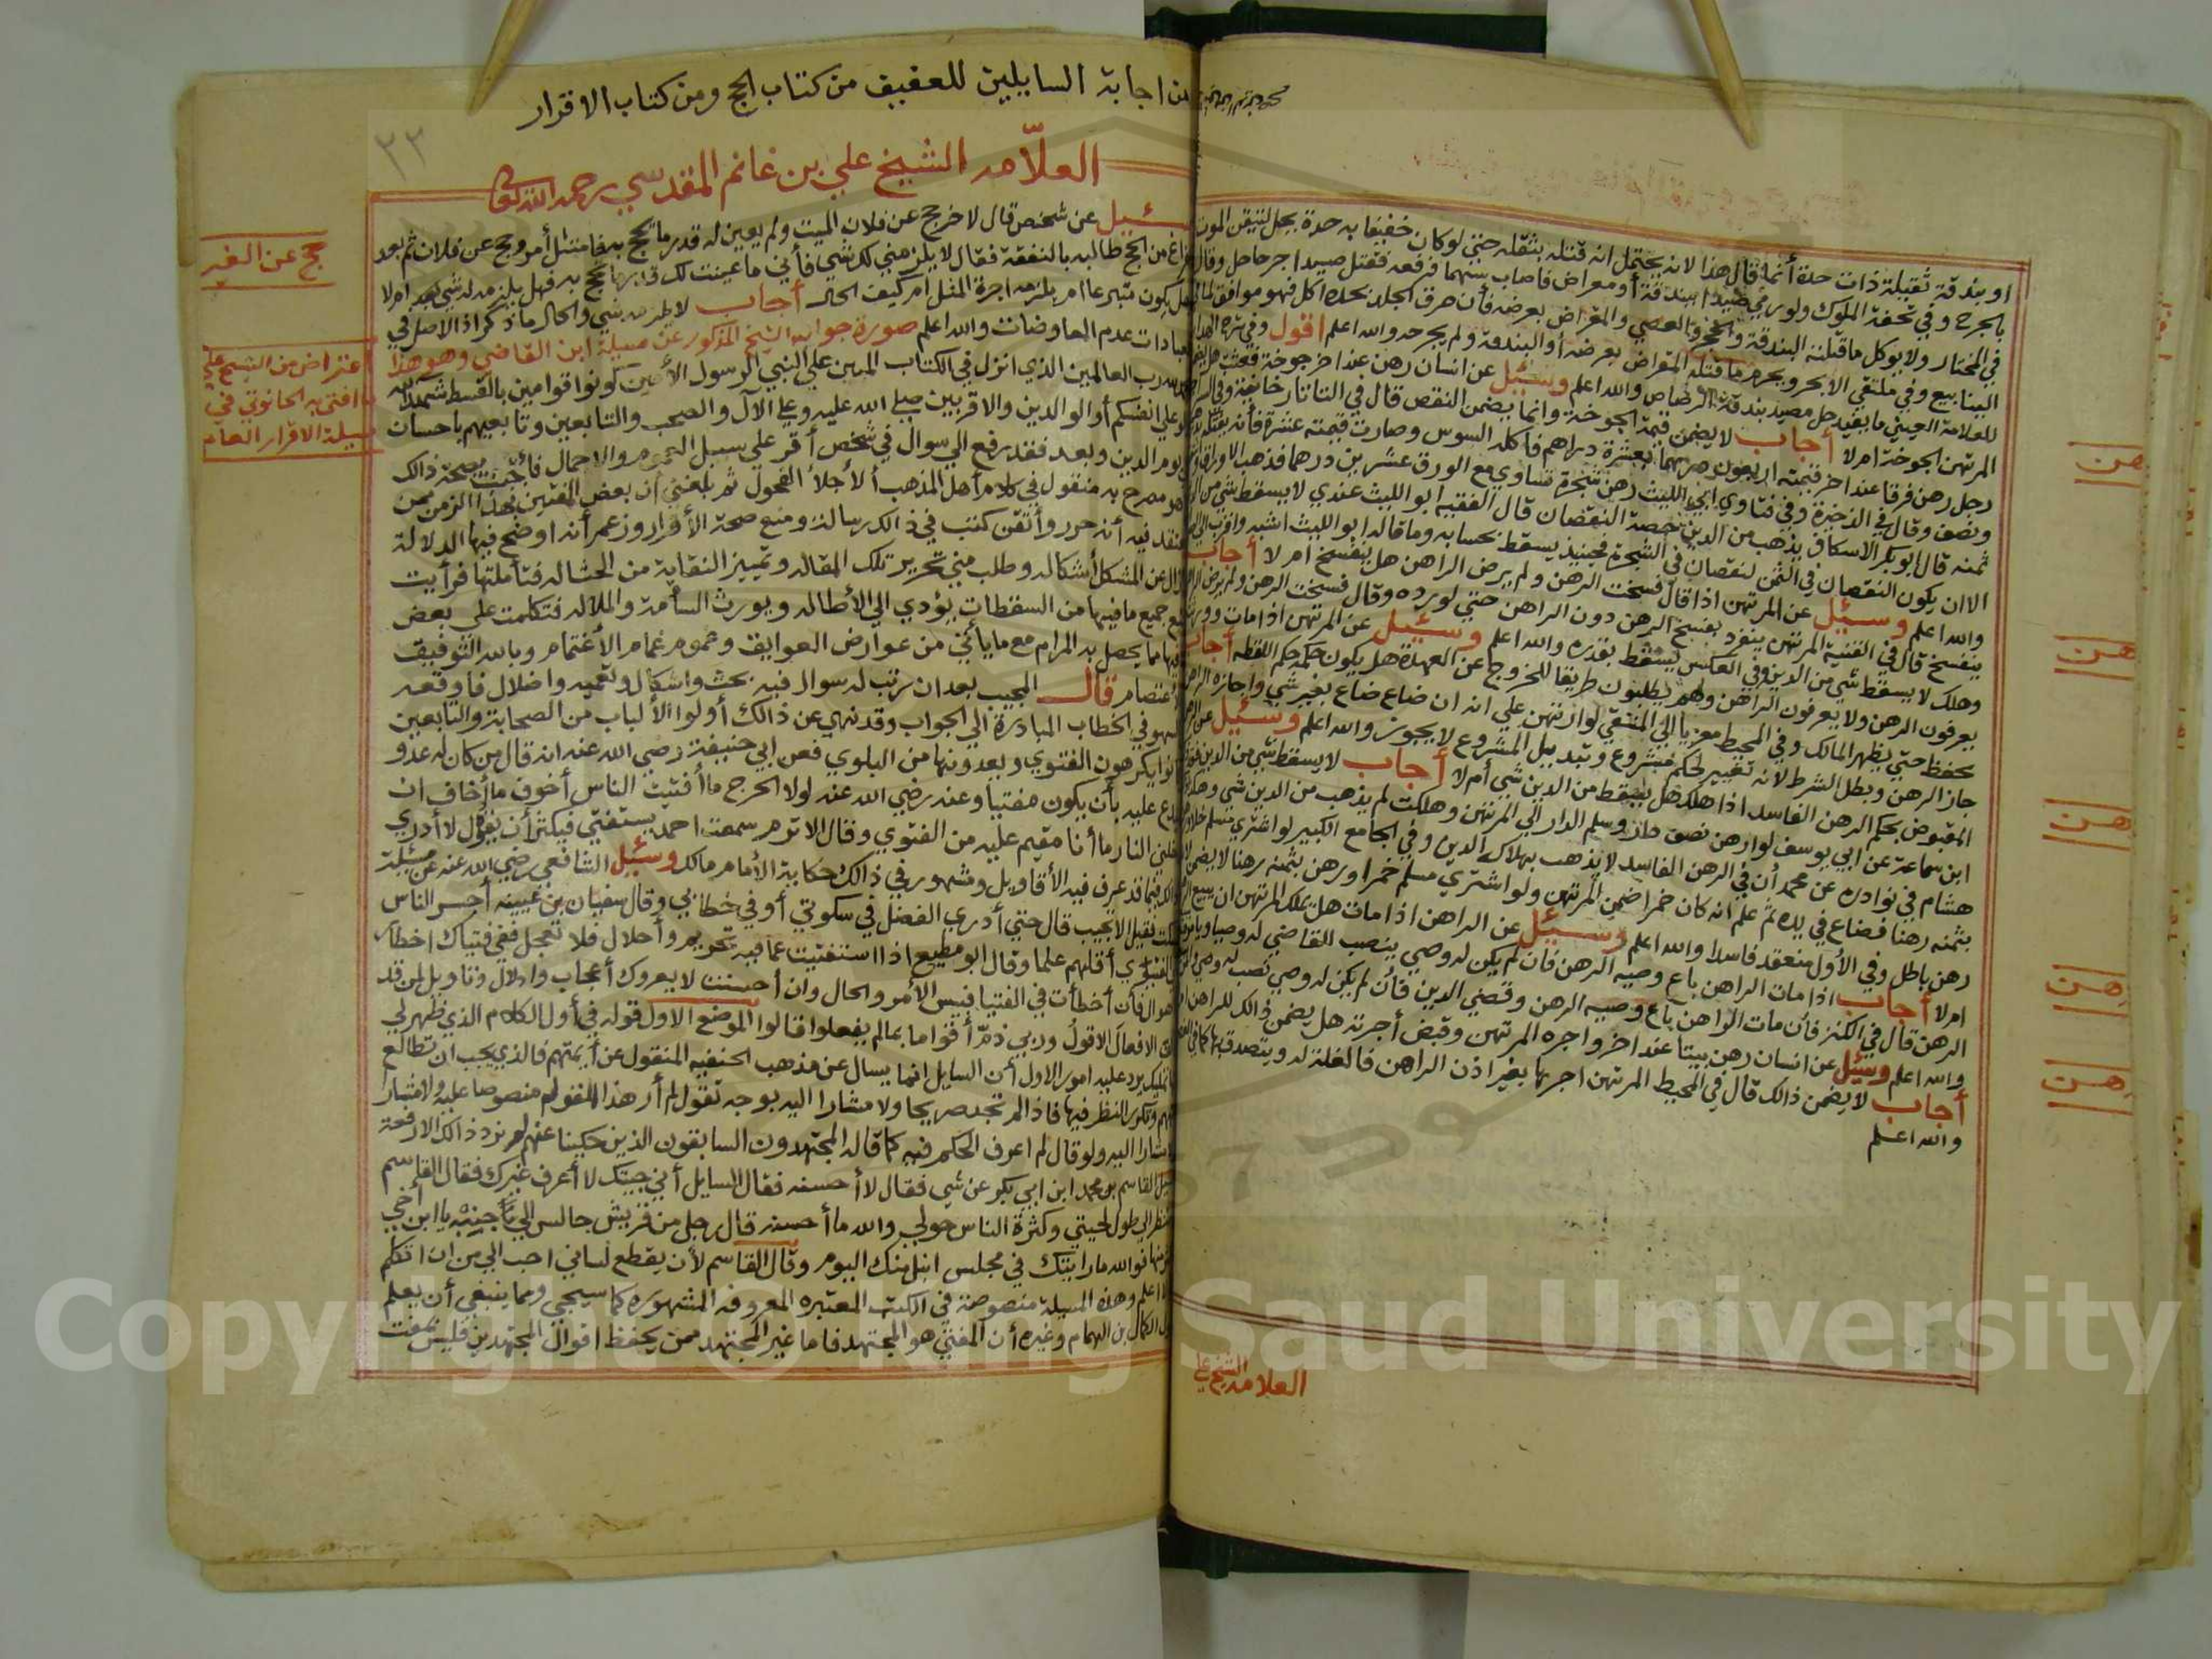 او بندقة ثقيلة ذات حدة أنما قال هذا لانه يحتمل انه قتله بثقله حتي لو كان خفيفا به حدة يحل لتيقن الموت
بالجرح وفي تحفة الملوك ولو رمي صيدا ببندقة أو معراض فاصاب سهما فرفعه فقتل صيدا اخر حل وقال
في المختار ولا يوكل ما قتلته البندقة والحجر والعصي والمعراض بعرضه فأن خرق الجلد بحده اكل فهو موافق لما
الينابيع وفي ملتقي الابحر ويحرم ما قتله المعراض بعرضه أو البندقة ولم يجرحه والله اعلم اقول وفي شرح
للعلامة العيني ما يفيد حل مصيد بندقة الرصاص والله اعلم وسئيل عن انسان رهن عند اخر جوخة فعثت هل
المرتهن الجوخة ام لا أجاب لا يضمن قيمة الجوخة وانما يضمن النقص قال في التاتارخانية
رجل رهن فرقا عند اخر قيمته اربعون درهما بعشرة دراهم فاكله السوس وصارت قيمته عشرة فأنه
ونصف وقال في الذخيرة وفي فتاوي ابي الليث رهن شجرة تساوي مع الورق عشرين درهما فذهب الاوراق
ثمنه قال ابو بكر الاسكاف يذهب من الدين حصة النقصان قال الفقيه ابو الليث عندي لا يسقط شي من
الا ان يكون النقصان في الثمن لنقصان في الشجرة فحينيذ يسقط بحسابه وما قاله ابو الليث اشبه واقرب
والله اعلم وسئيل عن المرتهن اذا قال فسخت الرهن ولم يرض الراهن هل ينفسخ ام لا أجاب
ينفسخ قال في القنية المرتهن ينفرد بفسخ الرهن دون الراهن حتي لو رده وقال فسخت الرهن ولم يرض
وهلك لا يسقط شي من الدين وفي العكس يسقط بقدره والله اعلم وسئيل عن المرتهن اذا مات وورثته
يعرفون الرهن ولا يعرفون الراهن وهم يطلبون طريقا للخروج عن العهدة هل يكون حكمه حكم اللقطه أجاب
يحفظ حتي يظهر المالك وفي المحيط معزيا الي المنتقي لو ارتهن علي انه ان ضاع ضاع بغير شي واجازه الراهن
جاز الرهن وبطل الشرط لانه تغيير لحكم مشروع وتبديل المشروع لا يجوز والله اعلم وسئيل عن
المقبوض بحكم الرهن الفاسد اذا هلك هل يسقط من الدين شي أم لا أجاب لا يسقط شي من الدين
ابن سماعة عن ابي يوسف لو ارهن نصف دار وسلم الدار الي المرتهن وهلكت لم يذهب من الدين شي
هشام في نوادره عن محمد أن في الرهن الفاسد لا يذهب بهلاكه الدين وفي الجامع الكبير لو اشتري مسلم
بثمنه رهنا فضاع في يده ثم علم انه كان خمرا ضمن المرتهن ولو اشتري مسلم خمرا ورهن بثمنه رهنا لا يضمن
رهن باطل وفي الأول منعقد فاسدا والله اعلم وسئيل عن الراهن اذا مات هل يملك المرتهن ان يبيع
ام لا أجاب اذا مات الراهن باع وصيه الرهن فان لم يكن له وصي ينصب القاضي له وصيا
الرهن قال في الكنز فأن مات الراهن باع وصيه الرهن وقضي الدين فأن لم يكن له وصي نصب له وصي
والله اعلم وسئيل عن انسان رهن بيتا عند اخر واجره المرتهن وقبض أجرته هل يضمن ذالك للراهن
أجاب لا يضمن ذالك قال في المحيط المرتهن اجرها بغير اذن الراهن فالغلة له ويتصدق بها
والله اعلم
العلامه الشيخ علي
رهن
رهن
رهن
رهن
رهن
من اجابة السايلين للعفيف من كتاب الحج ومن كتاب الاقرار
٢٣
العلاّمه الشيخ علي بن غانم المقدسي رحمه الله تعالي
سئيل عن شخص قال لاخر حج عن فلان الميت ولم يعين له قدر ما يحج به فامتثل أمره وحج عن فلان ثم بعد
فراغ من الحج طالبه بالنفقة فقال لا يلزمني لك شي فأني ما عينت لك قدرا تحج به فهل يلزمه له شي ام لا
هل يكون متبرعا ام يلزمه اجرة المثل ام كيف الحال أجاب لا يلزمه شي والحال ما ذكر اذ الاصل في
العبادات عدم المعاوضات والله اعلم صورة جواب الشيخ المذكور عن مسيلة ابن القاضي وهو هذا
الحمد لله رب العالمين الذي انزل في الكتاب المبين علي النبي الرسول الأمين كونوا قوامين بالقسط شهدا لله
ولو علي انفسكم أو الوالدين والاقربين صلي الله عليه وعلي الآل والصحب والتابعين وتابعيهم باحسان
الي يوم الدين وبعد فقد رفع الي سوال في شخص أقر علي سبيل العموم والاجمال فأجبت بصحة ذالك
مصرح به منقول في كلام أهل المذهب الأجلا الفحول ثم بلغني ان بعض المفتين بهذا الزمن ممن
يعتقد فيه أنه حرر وأتقن كتب في ذالك رسالة ومنع صحة الأقرار وزعم أنه اوضح فيها الدلالة
وأزال عن المشكل أشكاله وطلب مني تحرير تلك المقاله وتمييز النقاية من الحثاله فتأملتها فرأيت
جميع ما فيها من السقطات يؤدي الي الأطاله ويورث السأمة والملاله فتكلمت علي بعض
ما فيها مما يحصل به المرام مع ما يأتي من عوارض العوايق وهموم غمام الأغتمام وبالله التوفيق
والاعتصام قال المجيب بعد ان رتب له سوال فيه بحث واشكال وتعميه واضلال فاوقعه
السهو في الخطاب المبادرة الي الجواب وقد نهي عن ذالك أولوا الألباب من الصحابة والتابعين
كانوا يكرهون الفتوي ويعدونها من البلوي فعن ابي حنيفة رضي الله عنه انه قال من كان له عدو
فليدع عليه بأن يكون مفتيا وعنه رضي الله عنه لولا الحرج ما أفتيت الناس أخوف ما أخاف ان
يدخلني النار ما أنا مقيم عليه من الفتوي وقال الاثرم سمعت احمد يستفتي فيكثر أن يقول لا أدري
وذالك فيما قد عرف فيه الأقاويل ومشهور في ذالك حكاية الأمام مالك وسئيل الشافعي رضي الله عنه عن مسئلة
فسكت فقيل الا تجيب قال حتي أدري الفضل في سكوتي أو في خطابي وقال سفيان بن عيينه أجسر الناس
علي الفتوي أقلهم علما وقال ابو مطيع اذا استفتيت عما فيه تحريم وأحلال فلا تعجل ففي فتياك اخطار
واهوال فأن أخطأت في الفتيا فبيس الأمر والحال وان أحسنت لا يعروك أعجاب وادلال
الموضع الأول قوله في أول الكلام الذي ظهر لي
يرد عليه امور الاول أن السايل انما يسال عن مذهب الحنفيه المنقول عن أيمتهم فالذي يجب ان تطالع
كتبهم وتكرر النظر فيها فاذا لم تجد صريحا ولا مشارا اليه بوجه تقول لم أر هذا المنقول منصوصا عليه ولا مشارا
اليه ولو قال لم اعرف الحكم فيه كما قاله المجتهدون السابقون الذين حكينا عنهم لم يزد ذالك الا رفعة
سئيل القاسم بن محمد ابن ابي بكر عن شي فقال لا أحسنه فقال السايل أني جيتك لا أعرف غيرك فقال القاسم
لا تنظر الي طول لحيتي وكثرة الناس حولي والله ما أحسنه قال رجل من قريش جالس الي جنبه يا ابن أخي
الزمها فوالله ما رايتك في مجلس انبل منك اليوم وقال القاسم لأن يقطع لساني احب الي من ان اتكلم
بما لا اعلم وهذه المسيلة منصوصة في الكتب المعتبره المعروفه المشهوره كما سيجي ومما ينبغي أن يعلم
قال الكمال بن الهمام وغيره أن المفتي هو المجتهد فاما غير المجتهد ممن يحفظ اقوال المجتهدين فليس بمفت
حج عن الغير
اعتراض من الشيخ علي
ما افتي به الحانوتي في
مسيلة الاقرار العام
Copyright © King Saud University